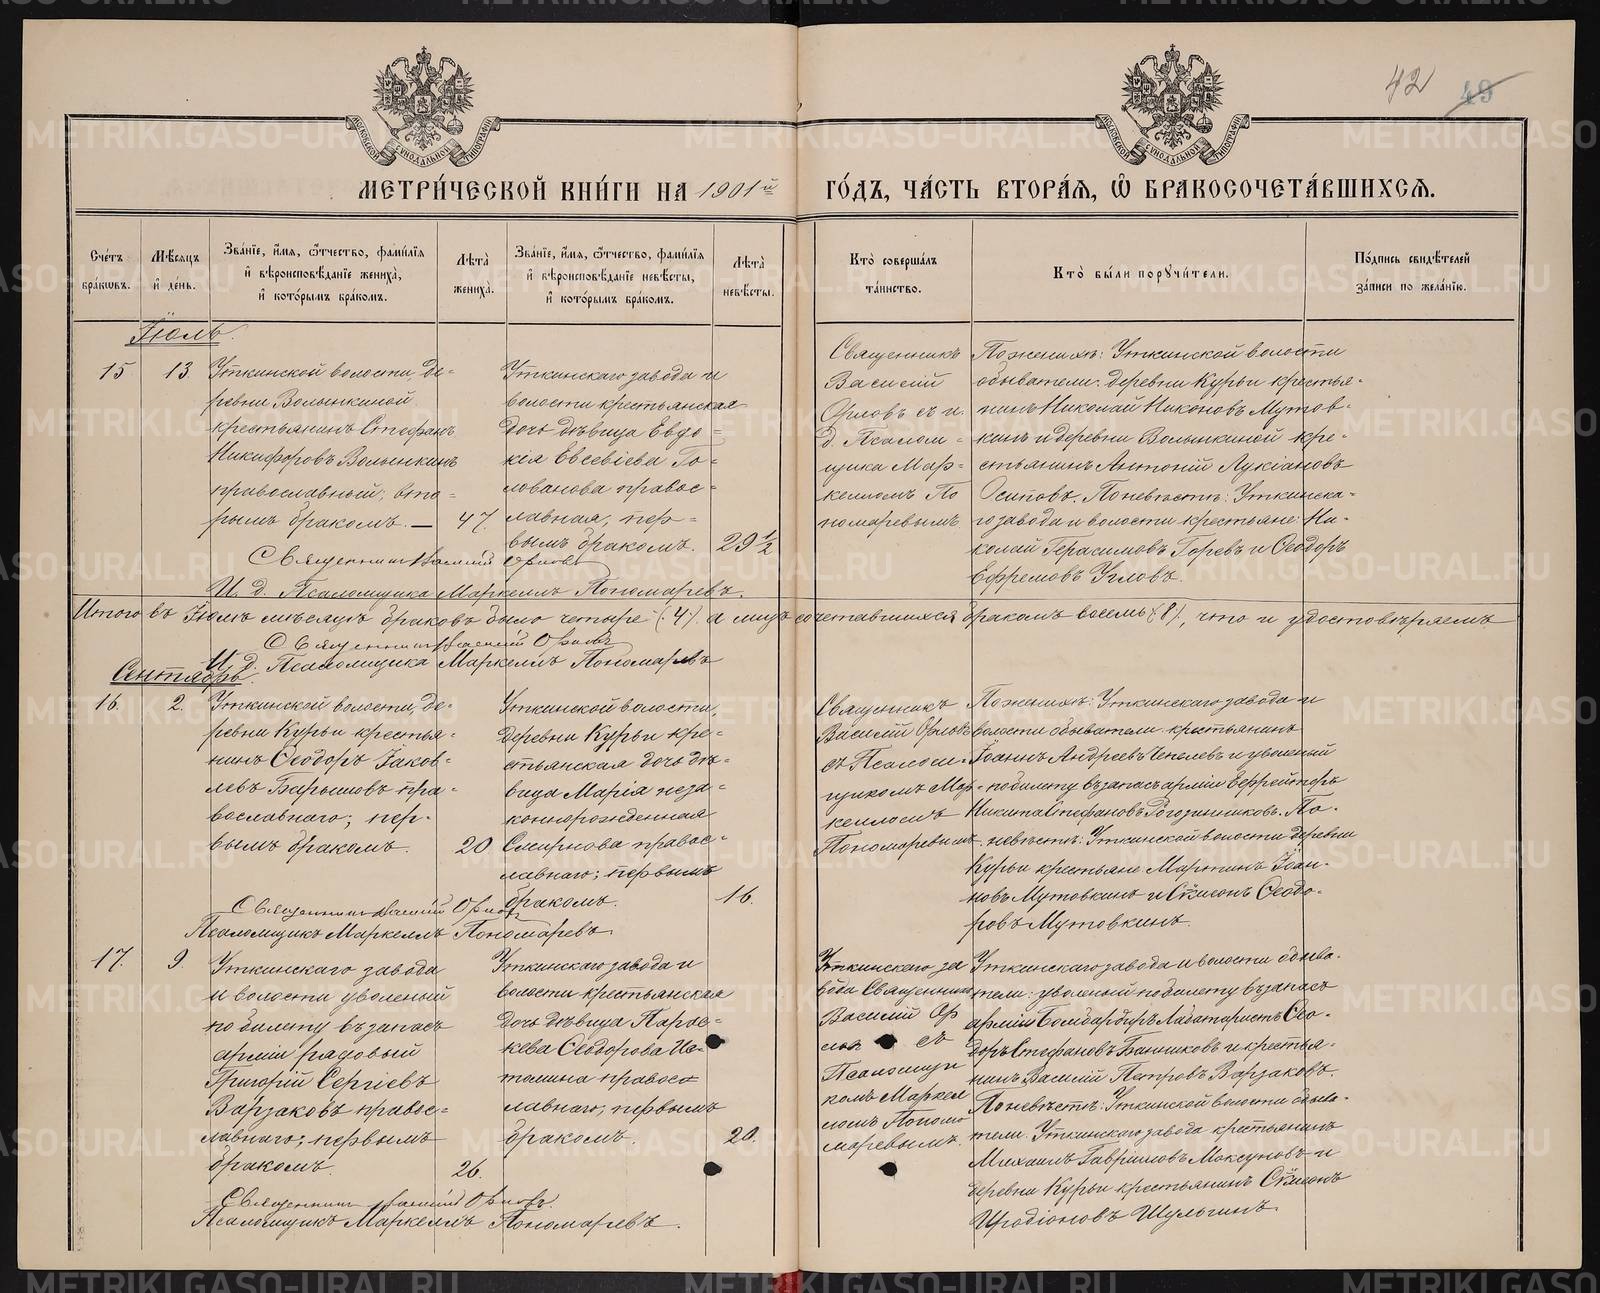 42 49
МОСКОВСКОЙ СѴНОДАЛЬНОЙ ТИПОГРАФІИ
МОСКОВСКОЙ СѴНОДАЛЬНОЙ ТИПОГРАФІИ
МЕТРИ́ЧЕСКОЙ КНИ́ГИ НА 1901й ГО́ДЪ, ЧА́СТЬ ВТОРА́Ѧ, Ѽ БРАКОСОЧЕТА́ВШИХСѦ.
Сче́тъ бра́кѡвъ.
Мѣ́сѧцъ и҆ де́нь.
Зва́нїе, и҆́мѧ, ѻ҆́тчество, фами́лїѧ и҆ вѣроисповѣ́данїе жениха̀, и҆ кото́рымъ бра́комъ.
Лѣ́та жениха̀.
Зва́нїе, и҆́мѧ, ѻ҆́тчество, фами́лїѧ и҆ вѣроисповѣ́данїе невѣ́сты, и҆ кото́рымъ бра́комъ.
Лѣ́та невѣ́сты.
Кто̀ соверша́лъ та́инство.
Кто̀ бы́ли порꙋчи́тели.
По́дпись свидѣ́телей за́писи по жела́нїю.
Іюль.
15 13.
Уткинской волости, де-
ревни Волынкиной
крестьянинъ Стефанъ
Никифоровъ Волынкинъ
православный, вто-
рымъ бракомъ. — 47.
Уткинскаго завода и
волости крестьянская
дочь дѣвица Евдо-
кія Евсевіева Го-
лованова правос-
лавная, пер-
вымъ бракомъ. 29½
Священникъ
Василій
Орловъ съ и.
д. Псалом-
щика Мар-
келломъ По
номаревымъ
По женихѣ: Уткинской волости
обыватели: деревни Курьи крестья-
нинъ Николай Никоновъ Мутов-
кинъ и деревни Волынкиной кре-
стьянинъ Антоній Лукіановъ
Осиповъ. По невѣстѣ: Уткинска-
го завода и волости крестьяне: Ни-
колай Герасимовъ Горевъ и Ѳеодоръ
Ефремовъ Угловъ.
Священникъ Василій Орловъ
И. д. Псаломщика Маркеллъ Пономаревъ.
Итого въ Іюлѣ мѣсяцѣ браковъ было четыре (4.) а лицъ сочетавшихся бракомъ восемь (8), что и удостовѣряемъ
Священникъ Василій Орловъ
И. д. Псаломщика Маркеллъ Пономаревъ
Сентябрь.
16. 2.
Уткинской волости, де-
ревни Курьи крестья-
нинъ Ѳеодоръ Іаков-
левъ Барышовъ пра-
вославнаго; пер-
вымъ бракомъ. 20
Уткинской волости,
деревни Курьи кре-
стьянская дочь дѣ-
вица Марія неза-
коннорожденная
Смирнова правос-
лавнаго; первымъ
бракомъ. 16.
Священникъ
Василій Орловъ
съ Псалом-
щикомъ Мар-
келломъ
Пономаревымъ
По женихѣ: Уткинскаго завода и
волости обыватели крестьянинъ
Іоаннъ Андреевъ Чепелевъ и уволеный
по билету въ запасъ арміи Ефрейторъ
Никита Стефановъ Рогозинниковъ. По-
невѣстѣ: Уткинской волости деревни
Курьи крестьяне Мартинъ Іоан-
новъ Мутовкинъ и Сѵмеонъ Ѳеодо-
ровъ Мутовкинъ.
Священникъ Василій Орловъ
Псаломщикъ Маркеллъ Пономаревъ.
17. 9.
Уткинскаго завода
и волости уволеный
по билету въ запасъ
арміи рядовый
Григорій Сергіевъ
Варзаковъ правос-
лавнаго; первымъ
бракомъ. 26.
Уткинскаго завода и
волости крестьянская
дочь дѣвица Парас-
кева Ѳеодорова Ис-
томина правос
лавнаго; первымъ
бракомъ. 20.
Уткинскаго за
вода Священникъ
Василій Ор
ловъ съ
Псаломщи
комъ Маркел
ломъ Поно
маревымъ.
Уткинскаго завода и волости обыва-
тели: уволеный по билету въ запасъ
арміи Бомбардиръ Лаборатористъ Ѳео-
доръ Стефановъ Банниковъ и крестья-
нинъ Василій Петровъ Варзаковъ.
По невѣстѣ: Уткинской волости обыва-
тели: Уткинскаго завода крестьянинъ
Михаилъ Гавріиловъ Моксуновъ и
деревни Курьи крестьянинъ Сѵмеонъ
Иродіоновъ Шульгинъ.
Священникъ Василій Орловъ.
Псаломщикъ Маркеллъ Пономаревъ.
METRIKI.GASO-URAL.RU